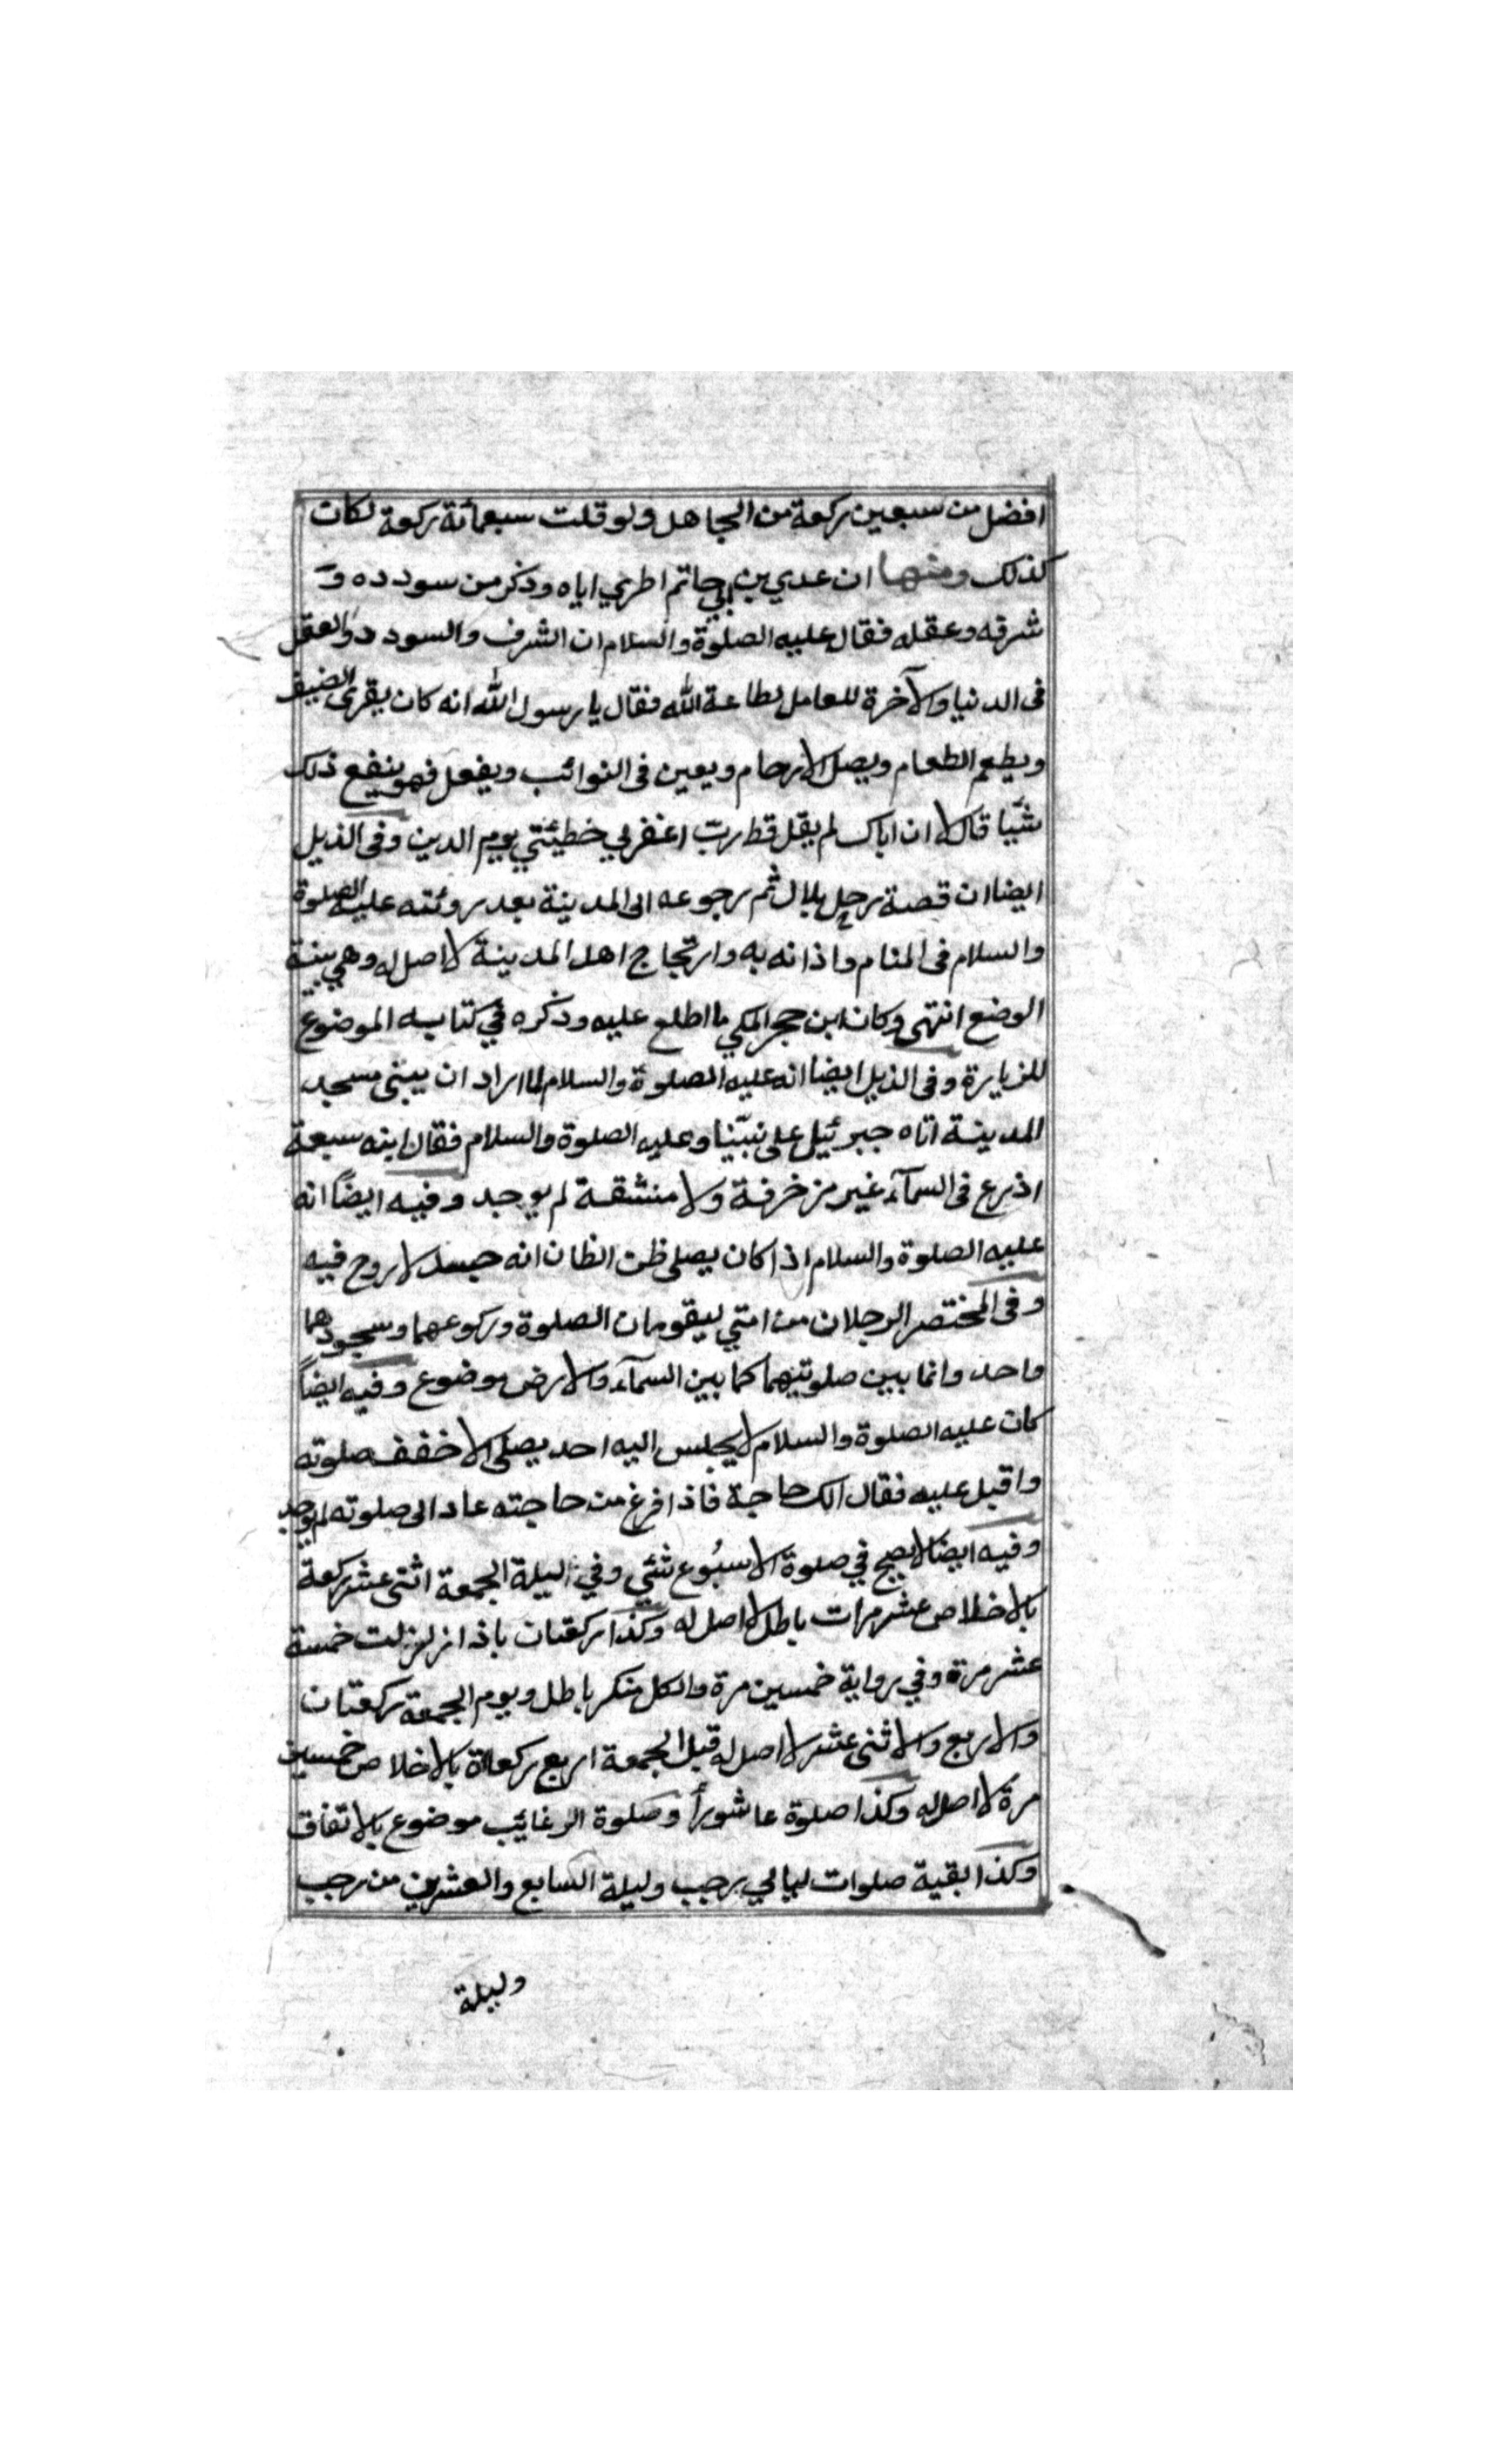 افضل من سبعين ركعة من الجاهل ولو قلت سبعمائة ركعة لكان
كذلك ومنها ان عدي بن ابي حاتم اطري اباه وذكر من سودده و
شرفه وعقله فقال عليه الصلوة والسلام ان الشرف والسودد والعقل
فى الدنيا والآخرة للعامل لطاعة الله فقال يا رسول الله انه كان يقرى الضيف
ويطعم الطعام ويصل الارحام ويعين فى النوائب ويفعل فهو ينفع ذلك
شيّا قال لا ان اباك لم يقل قط ربّ اغفر لي خطيئتي يوم الدين وفى الذيل
ايضا ان قصة رحل بلال ثم رجوعه الى المدينة بعد روئته عليه الصلوة
والسلام فى المنام واذانه به وارتجاج اهل المدينة لا اصل له وهي بينة
الوضع انتهى وكان ابن حجر المكي ما اطلع عليه وذكره في كتابه الموضوع
للزيارة وفى الذيل ايضا انه عليه الصلوة والسلام لما اراد ان يبنى مسجد
المدينة اتاه جبرئيل على نبيّنا وعليه الصلوة والسلام فقال ابنه سبعة
اذرع فى السمآء غير مزخرفة ولا منشقة لم يوجد وفيه ايضاً انه
عليه الصلوة والسلام اذا كان يصلى ظن الظان انه جسد لا روح فيه
وفى المختصر الرجلان من امتي ليقومان الصلوة وركوعهما وسجودهما
واحد وانما بين صلوتيهما كما بين السمآء والارض موضوع وفيه ايضاً
كان عليه الصلوة والسلام لا يجلس اليه احد يصلى الا خفف صلوته
واقبل عليه فقال الك حاجة فاذا فرغ من حاجته عاد الى صلوته لم يوجد
وفيه ايضا لا يصح في صلوة الاسبُوع شئي وفي اليلة الجمعة اثنى عشر ركعة
بالاخلاص عشر مرات باطل لا اصل له وكذا ركعتان باذا زلزلت خمسة
عشر مرة وفي رواية خمسين مرة والكل منكر باطل ويوم الجمعة ركعتان
والاربع والاثنى عشر لا اصل له قبل الجمعة اربع ركعاة بالاخلاص خمسين
مرة لا اصل له وكذا صلوة عاشورأ وصلوة الرغايب موضوع بالاتفاق
وكذا بقية صلوات ليالي رجب وليلة السابع والعشرين من رجب
وليلة